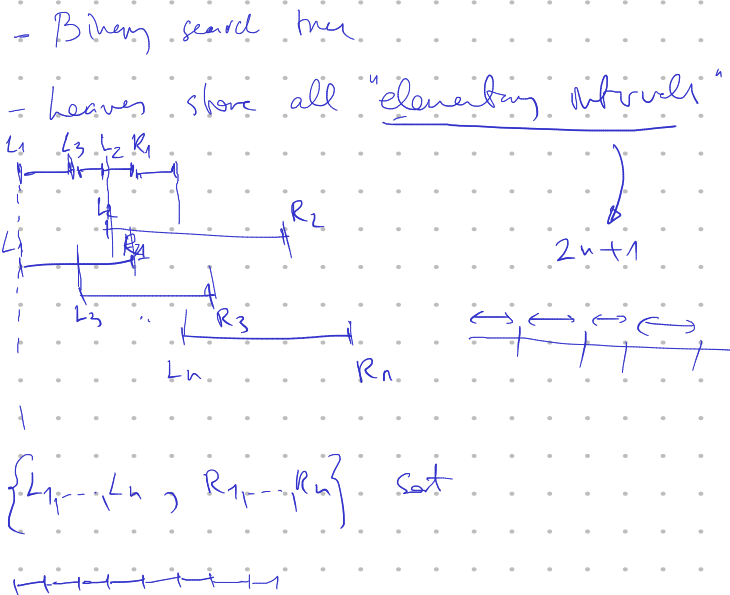 - Binary search tree
- Leaves store all "elementary intervals"
L1 L3 L2 R1
L2 R2
2n+1
L1 R1
L3 .. R3
Ln Rn
{L1,...,Ln , R1,...,Rn} sort